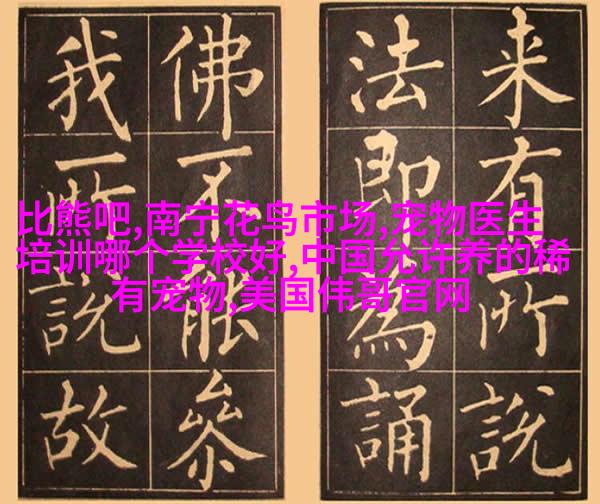 来有所說
法即為誦
佛不能參
我所說故
比熊吧,南宁花鸟市场,宠物医生
培训哪个学校好,中国允许养的稀
有宠物,美国伟哥官网